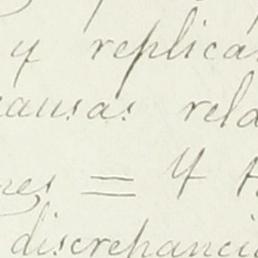 y replica
causas rela
nes = Y
discrepanci